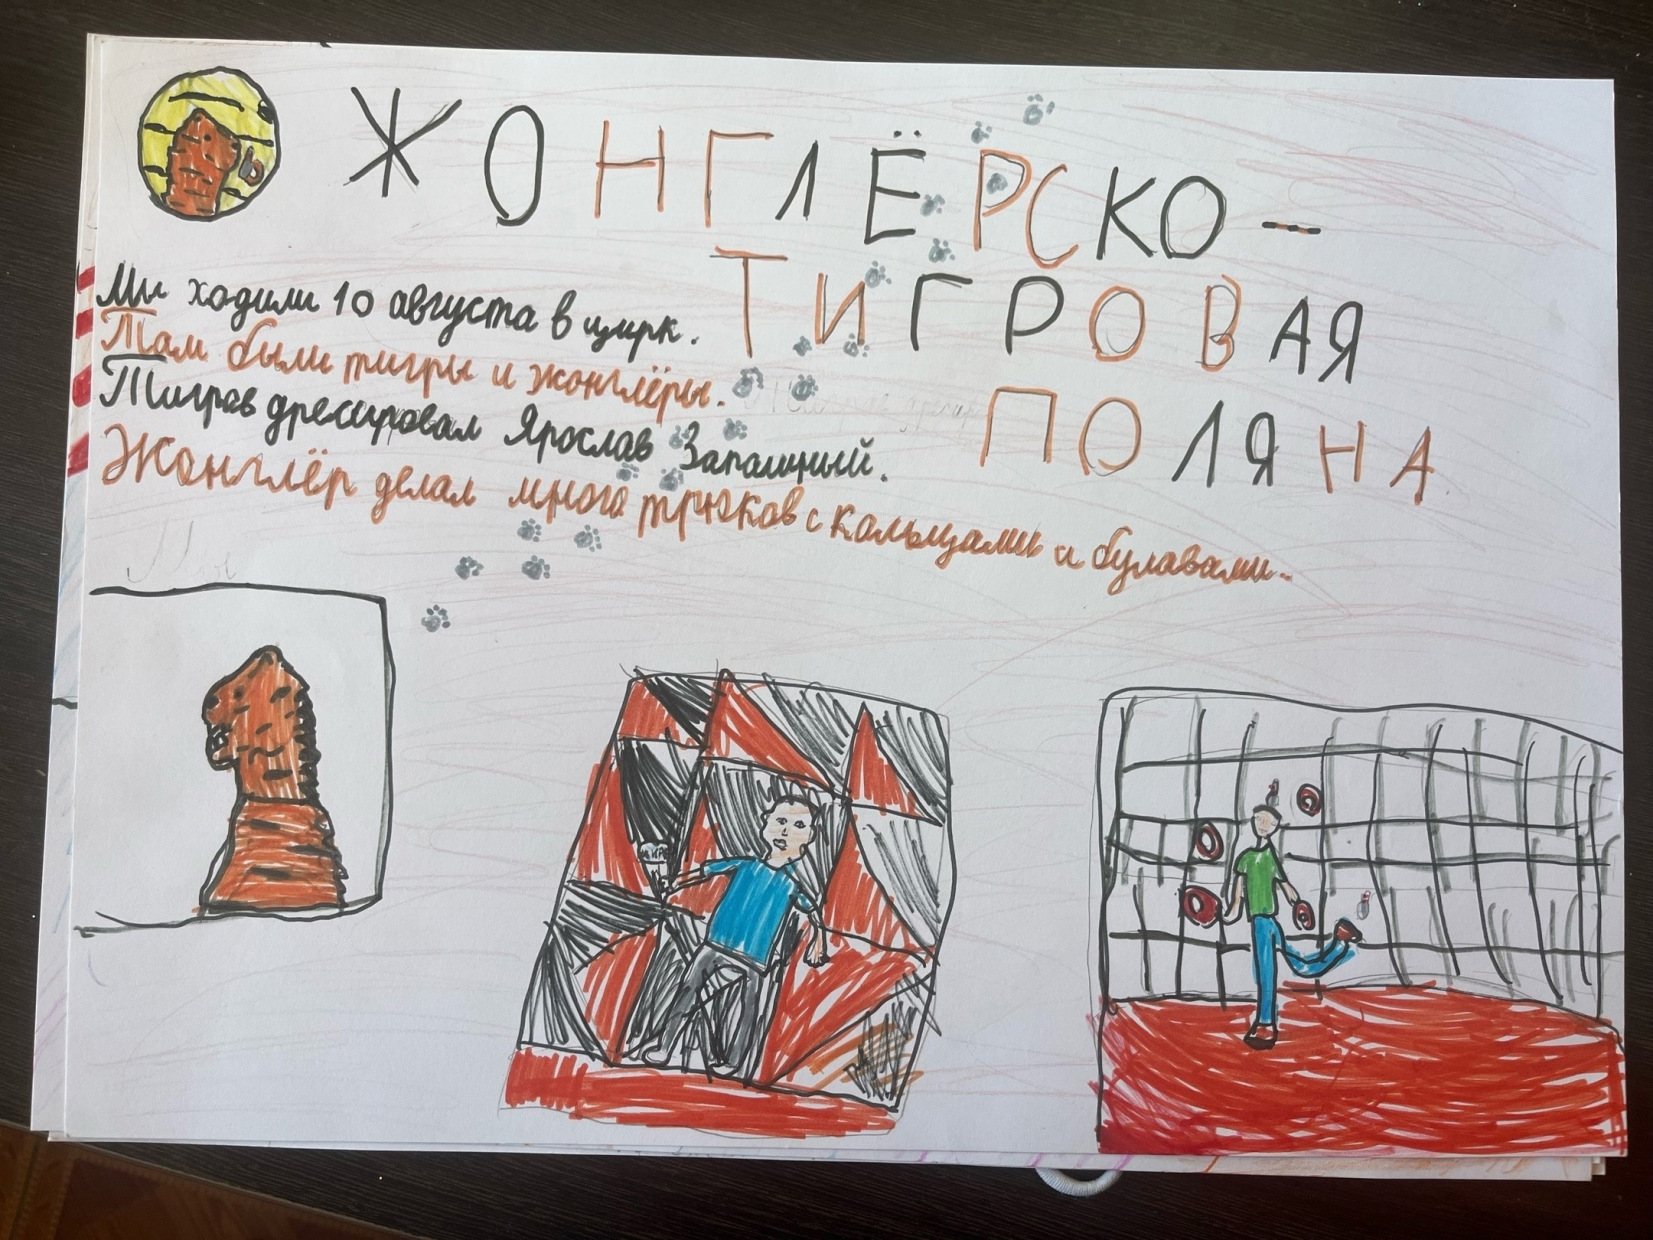 ЖОНГЛЁРСКО-
ТИГРОВАЯ
ПОЛЯНА
Мы ходили 10 августа в цирк.
Там были тигры и жонглёры.
Тигров дресировал Ярослав Запашный.
Жонглёр делал много трюков с кольцами и булавами.